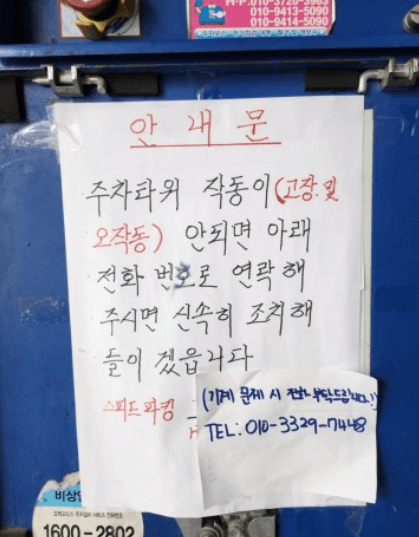 010-9413-5090
010-9414-5090
안내문
주차타워 작동이(고장 및
오작동) 안되면 아래
전화 번호로 연락해
주시면 신속히 조치해
들이 겠읍니다
스피드파킹
(기계 문제 시 전화 부탁드립니다!)
TEL: 010-3329-7448
1600-2802